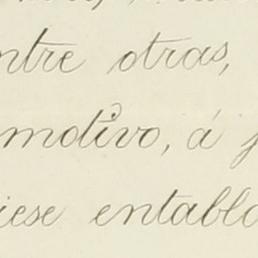 ntre otras,
motivo, á
iese entabla